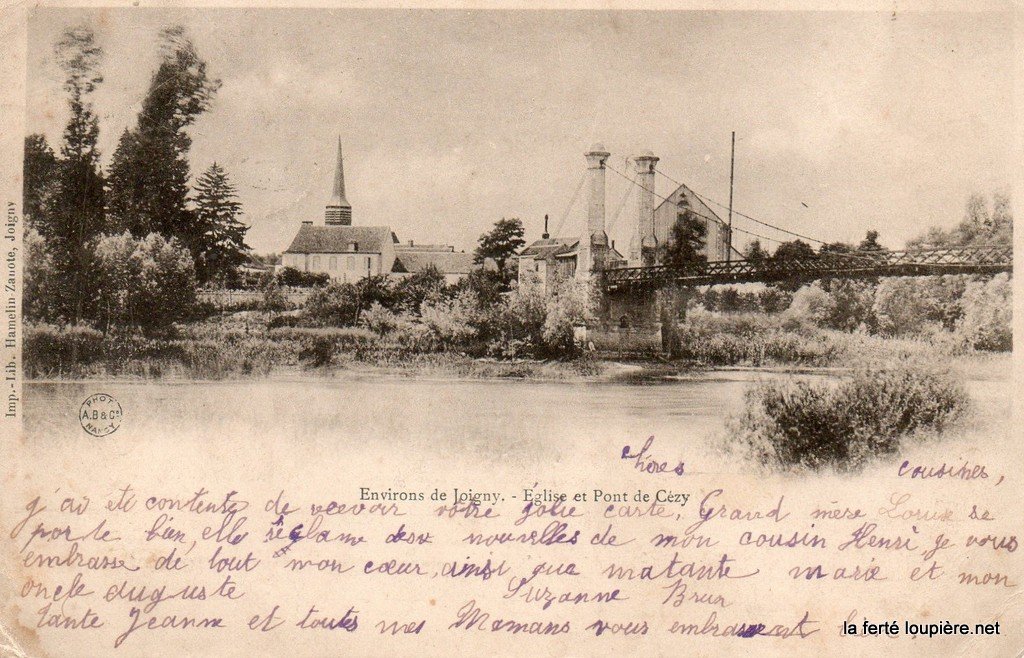 Imp.-Lib. Hamelin-Zanote, Joigny
PHOT
A.B & Cº
NANCY
Environs de Joigny. - Eglise et Pont de Cézy
Chères cousines,
j'ai eté contente de recevoir votre jolie carte, Grand mère Louise se
porte bien, elle réclame des nouvelles de mon cousin Henri, je vous
embrasse de tout mon cœur, ainsi que matante marie et mon
oncle Auguste
Suzanne Brun
tante Jeanne et toutes mes Mamans vous embrassent
la ferté loupière.net